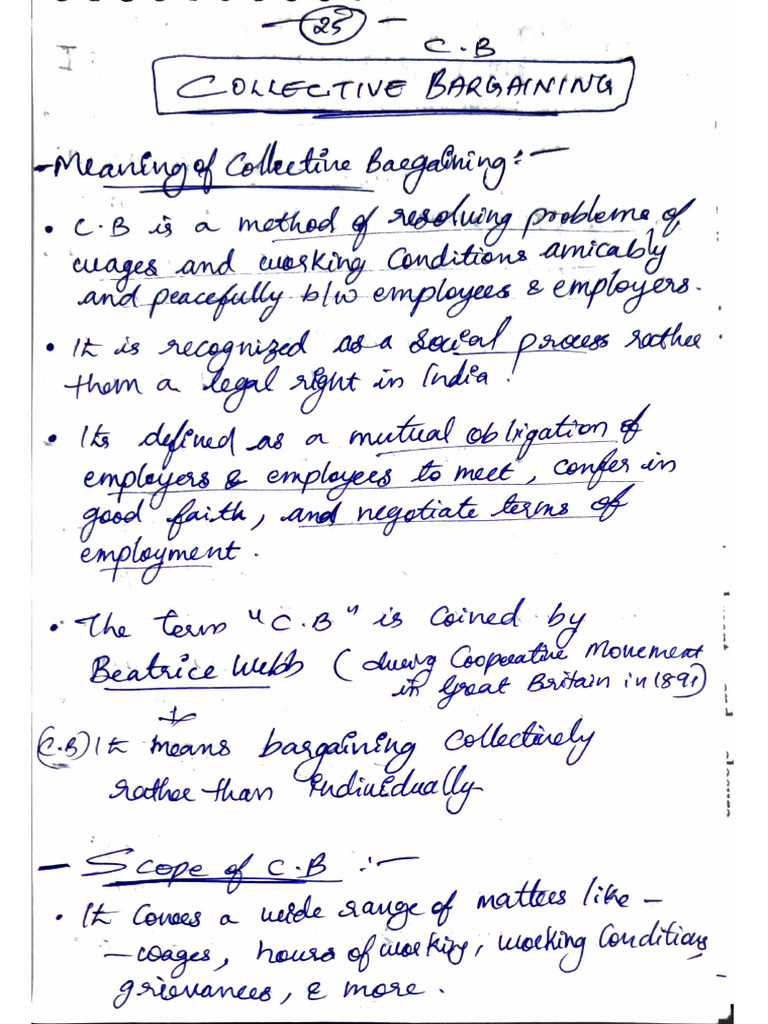 25
C.B
COLLECTIVE BARGAINING
- Meaning of Collective Bargaining:-
• C.B is a method of resolving problems of
wages and working Conditions amicably
and peacefully b/w employees & employers.
• It is recognized as a social process rather
them a legal right in India!
• Its defined as a mutual obligation of
employers & employees to meet, confer in
good faith, and negotiate terms of
employment.
• The term "C.B" is coined by
Beatrice Webb (during Cooperative Movement
in Great Britain in 1891)
(C.B) It means bargaining collectively
rather than individually
- Scope of C.B :-
• It Covers a wide range of matters like -
- wages, hours of working, working Conditions,
grievances, & more.